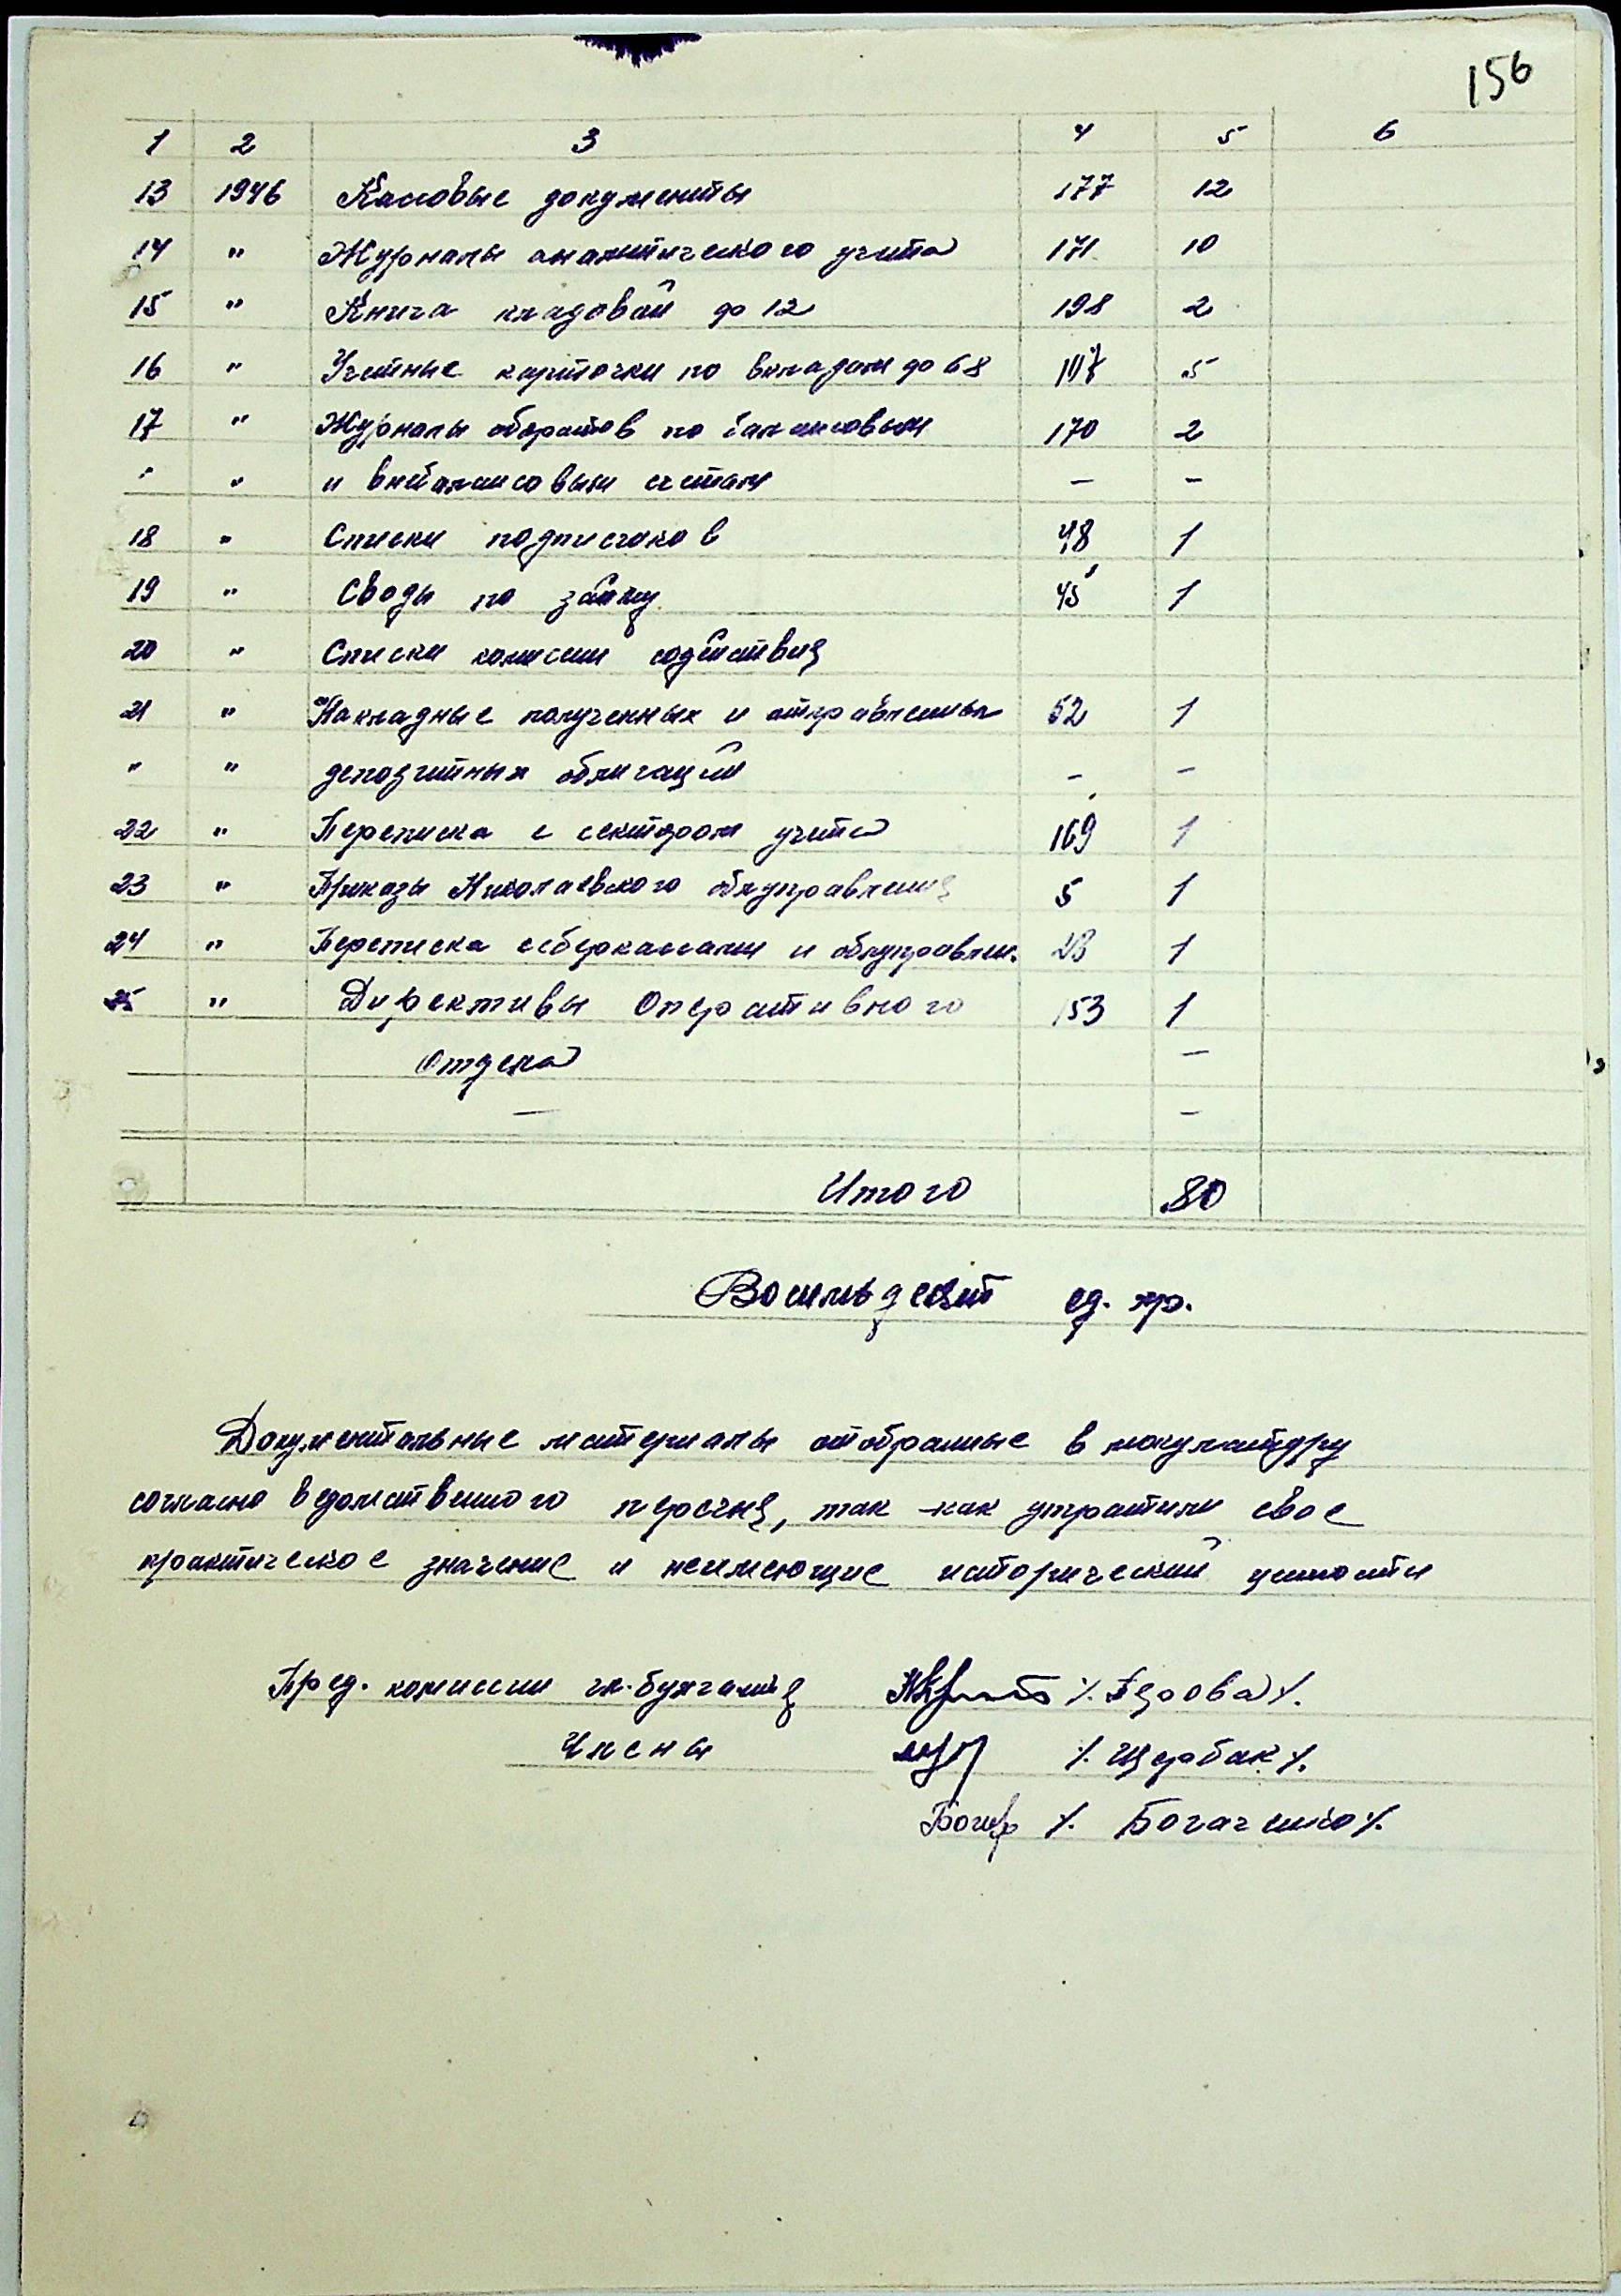 156
1 2 3 4 5 6
13 1946 Кассовые документы 177 12
14 " Журналы аналитического учета 171 10
15 " Книга кладовой до 12 198 2
16 " Учетные карточки по вкладам до 68 107 5
17 " Журналы оборотов по балансовым 170 2
" " и внебалансовым счетам — —
18 " Списки подписчиков 48 1
19 " Своды по займу 45 1
20 " Списки комисии содействия
21 " Накладные полученных и отправленных 52 1
" " депозитных облигаций — —
22 " Переписка с сектором учета 169 1
23 " Приказы Николаевского облуправления 5 1
24 " Переписка с сберкассами и облуправлен. 23 1
25 " Директивы Оперативного 153 1
Отдела —
— —
Итого 80
Восемьдесят ед. хр.
Документальные материалы отобранные в макулатуру
согласно ведомственного перечня, так как утратили свое
практическое значение и неимеющие исторический ценности
Пред. комиссии гл. бухгалтер /. /.
Члены /. Щербак /.
/. Богаченко /.